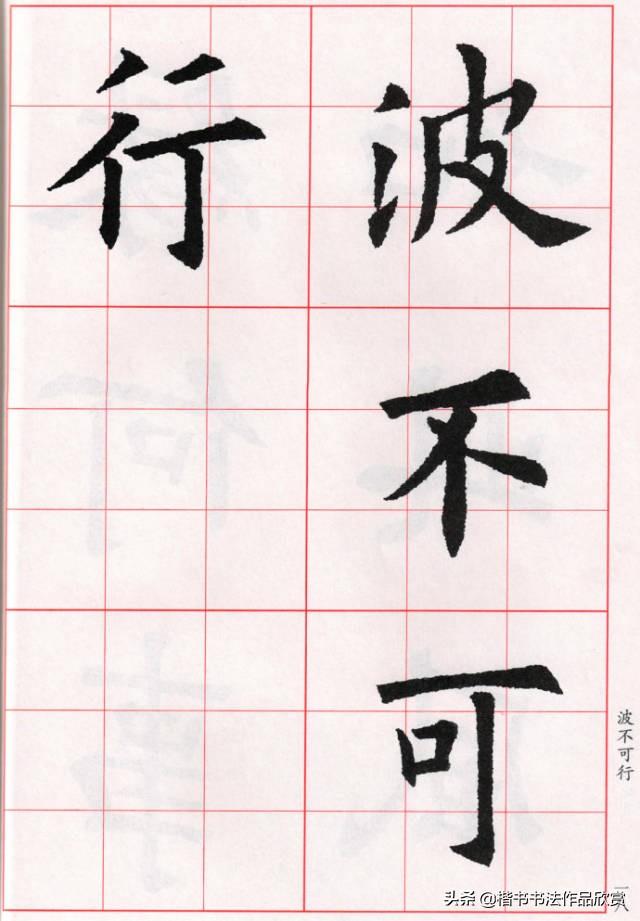 波不可
行
波不可行
一六
头条 @楷书书法作品欣赏